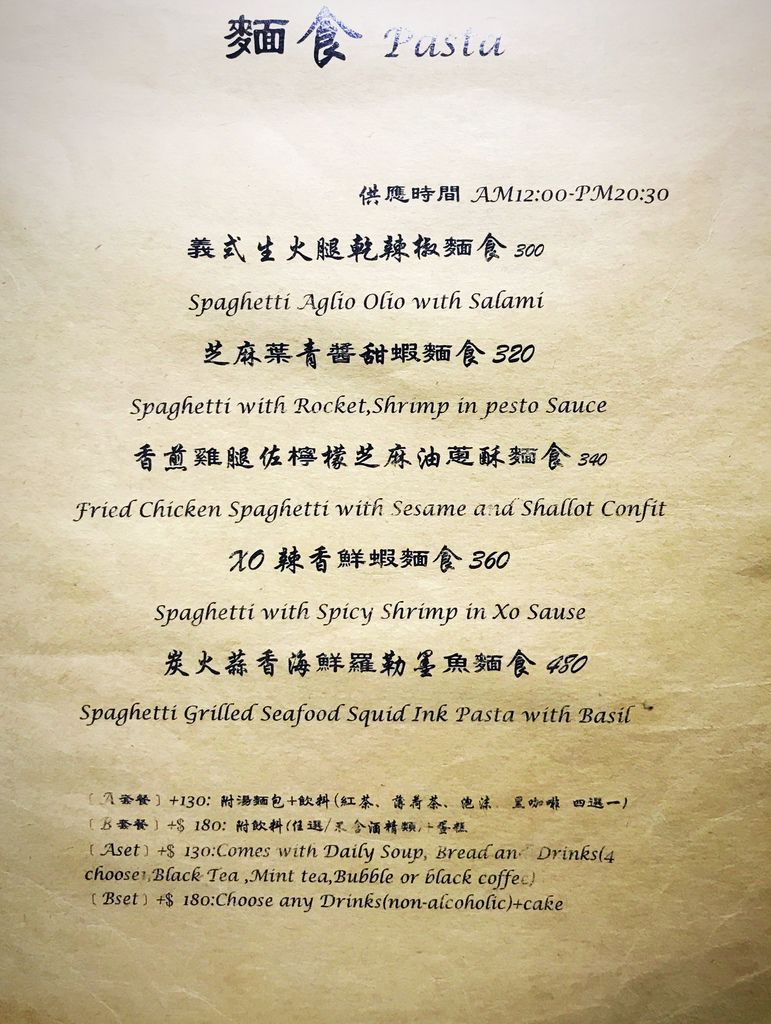 麵食 Pasta
供應時間 AM12:00-PM20:30
義式生火腿乾辣椒麵食 300
Spaghetti Aglio Olio with Salami
芝麻葉青醬甜蝦麵食 320
Spaghetti with Rocket,Shrimp in pesto Sauce
香煎雞腿佐檸檬芝麻油蔥酥麵食 340
Fried Chicken Spaghetti with Sesame and Shallot Confit
XO 辣香鮮蝦麵食 360
Spaghetti with Spicy Shrimp in Xo Sause
炭火蒜香海鮮羅勒墨魚麵食 480
Spaghetti Grilled Seafood Squid Ink Pasta with Basil
〔A套餐〕+130: 附湯麵包+飲料(紅茶、薄荷茶、泡沫、黑咖啡 四選一)
〔B套餐〕+$ 180: 附飲料(任選/不含酒精類)+蛋糕
〔Aset〕+$ 130:Comes with Daily Soup, Bread and Drinks(4
choose1,Black Tea ,Mint tea,Bubble or black coffee)
〔Bset〕+$ 180:Choose any Drinks(non-alcoholic)+cake